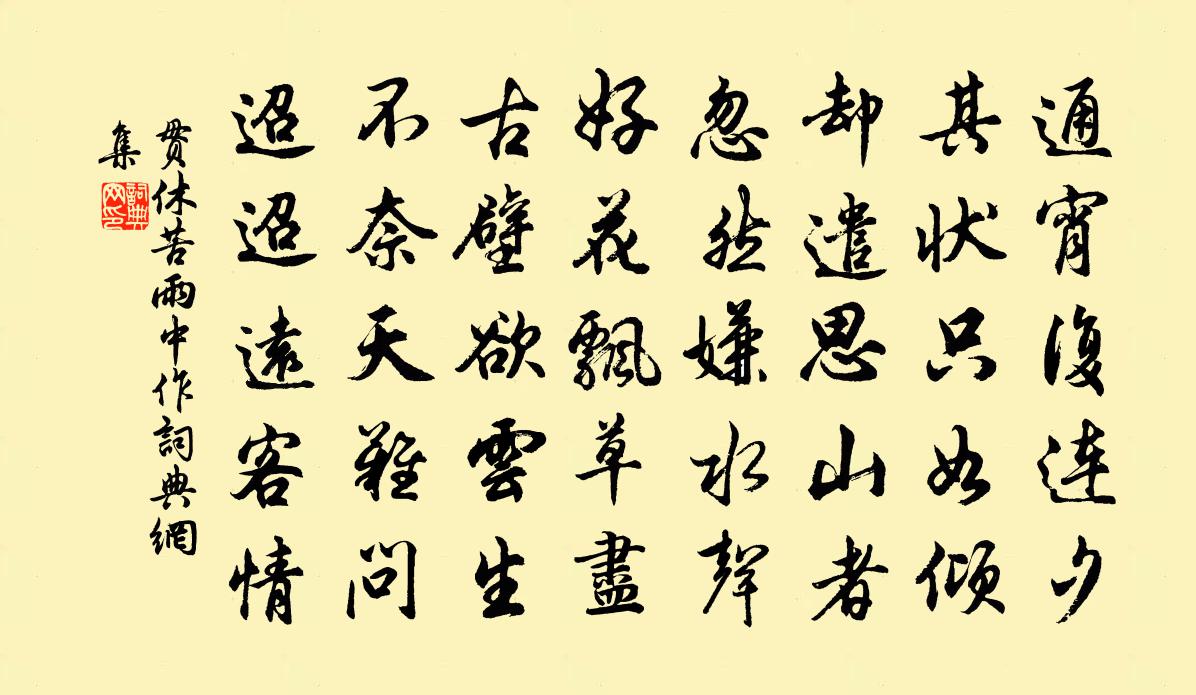 通宵復連夕
其狀只如傾
却遣思山者
忽然嫌水聲
好花飄草盡
古壁欲雲生
不奈天難問
迢迢遠客情
貫休苦雨中作詞典網
集
詞典網印